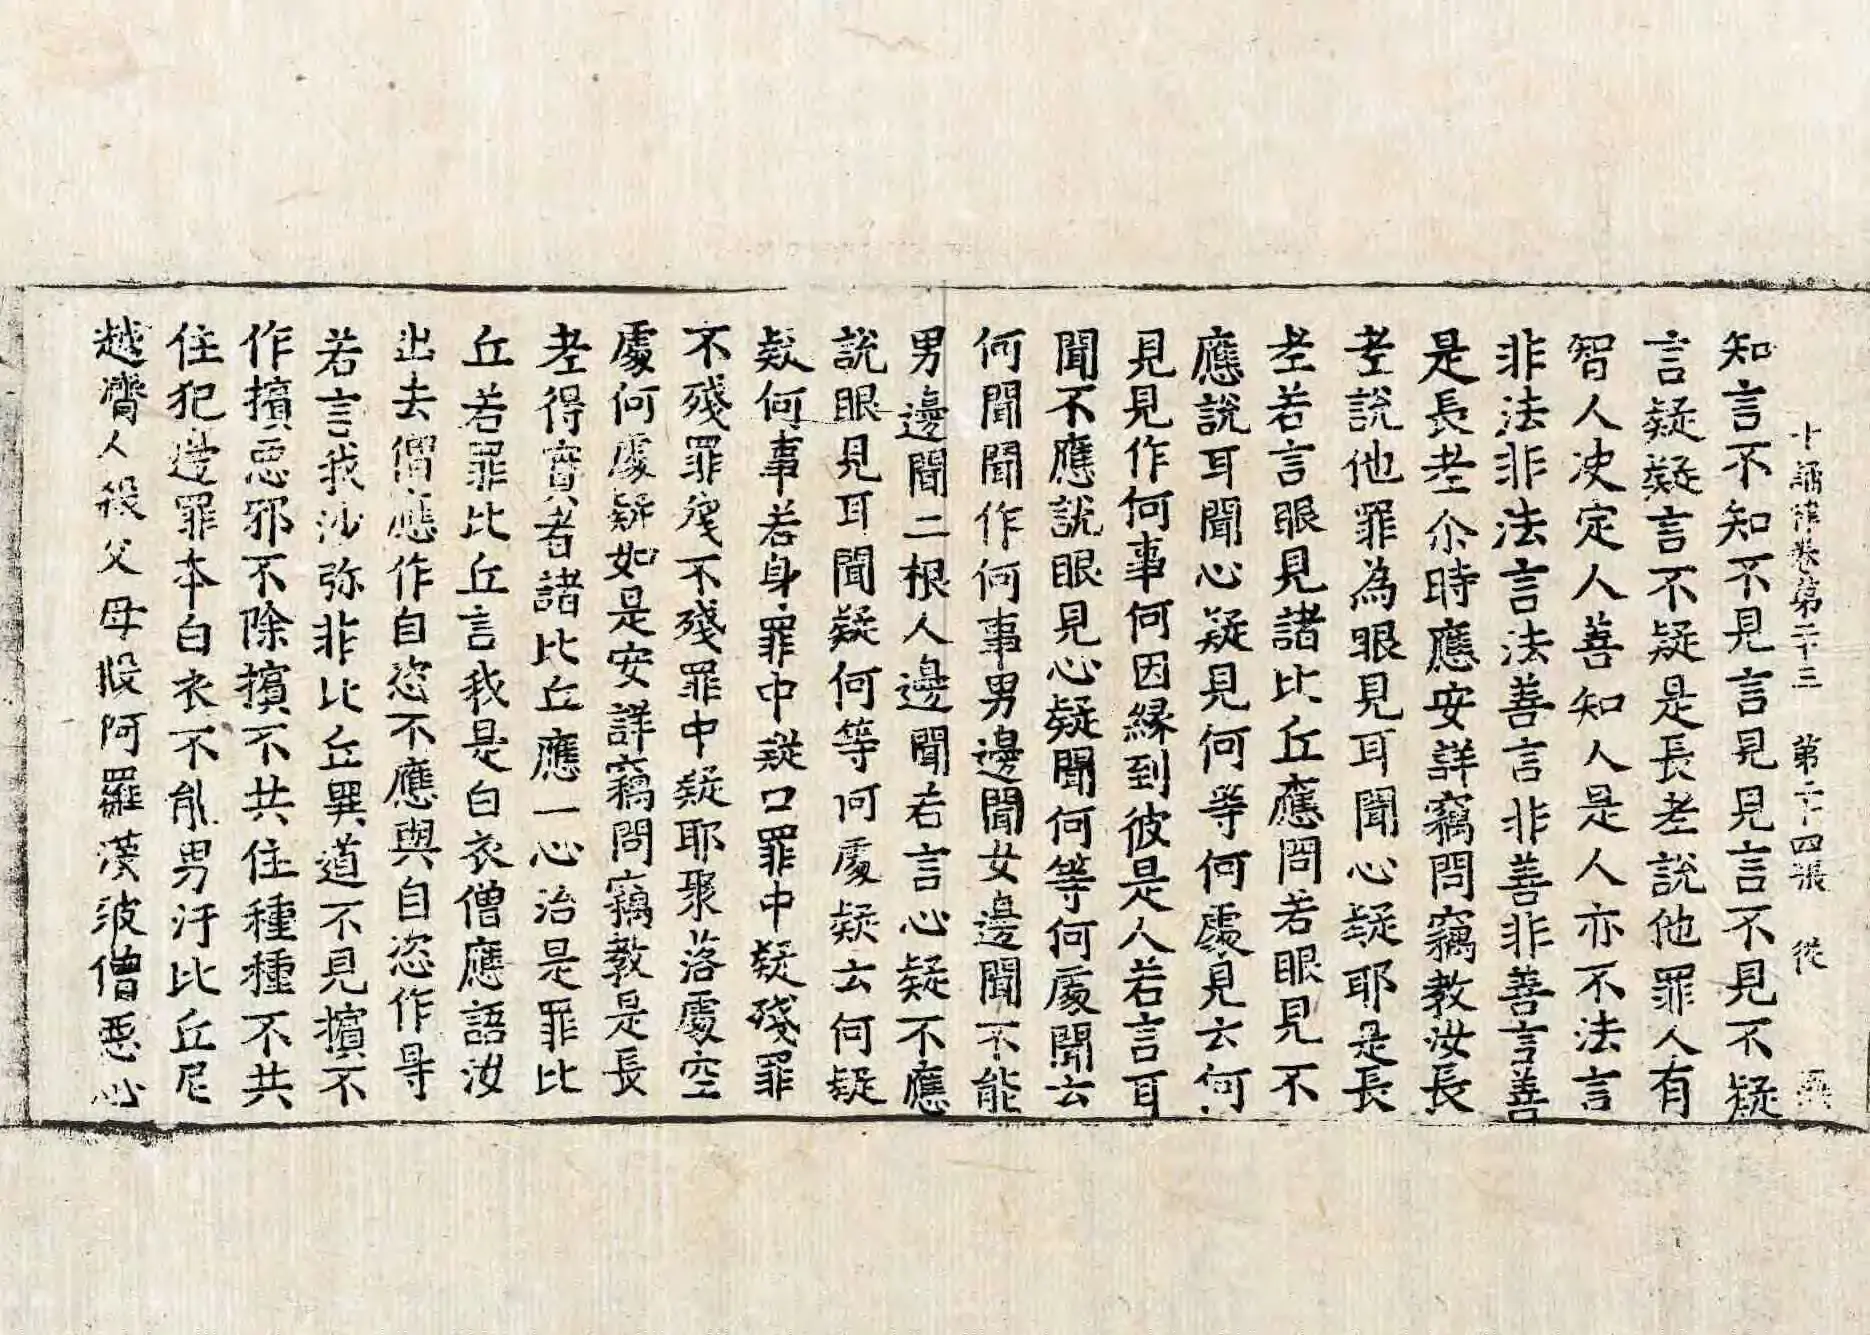 十誦律卷第二十三 第二十四張 從
知言不知不見言見見言不見不疑
言疑疑言不疑是長老說他罪人有
智人决定人善知人是人亦不法言
非法非法言法善言非善非善言善
是長老尒時應安詳竊問竊教汝長
老說他罪為眼見耳聞心疑耶是長
老若言眼見諸比丘應問若眼見不
應說耳聞心疑見何等何處見云何
見見作何事何因緣到彼是人若言耳
聞不應說眼見心疑聞何等何處聞云
何聞聞作何事男邊聞女邊聞不能
男邊聞二根人邊聞若言心疑不應
說眼見耳聞疑何等何處疑云何疑
疑何事若身罪中疑口罪中疑殘罪
不殘罪疑不殘罪中疑耶聚落處空
處何處疑如是安詳竊問竊教是長
老得實者諸比丘應一心治是罪比
丘若罪比丘言我是白衣僧應語汝
出去僧應作自恣不應與自恣作㝵
若言我沙弥非比丘異道不見擯不
作擯惡邪不除擯不共住種種不共
住犯邊罪本白衣不能男汙比丘尼
越濟人殺父母殺阿羅漢破僧惡心